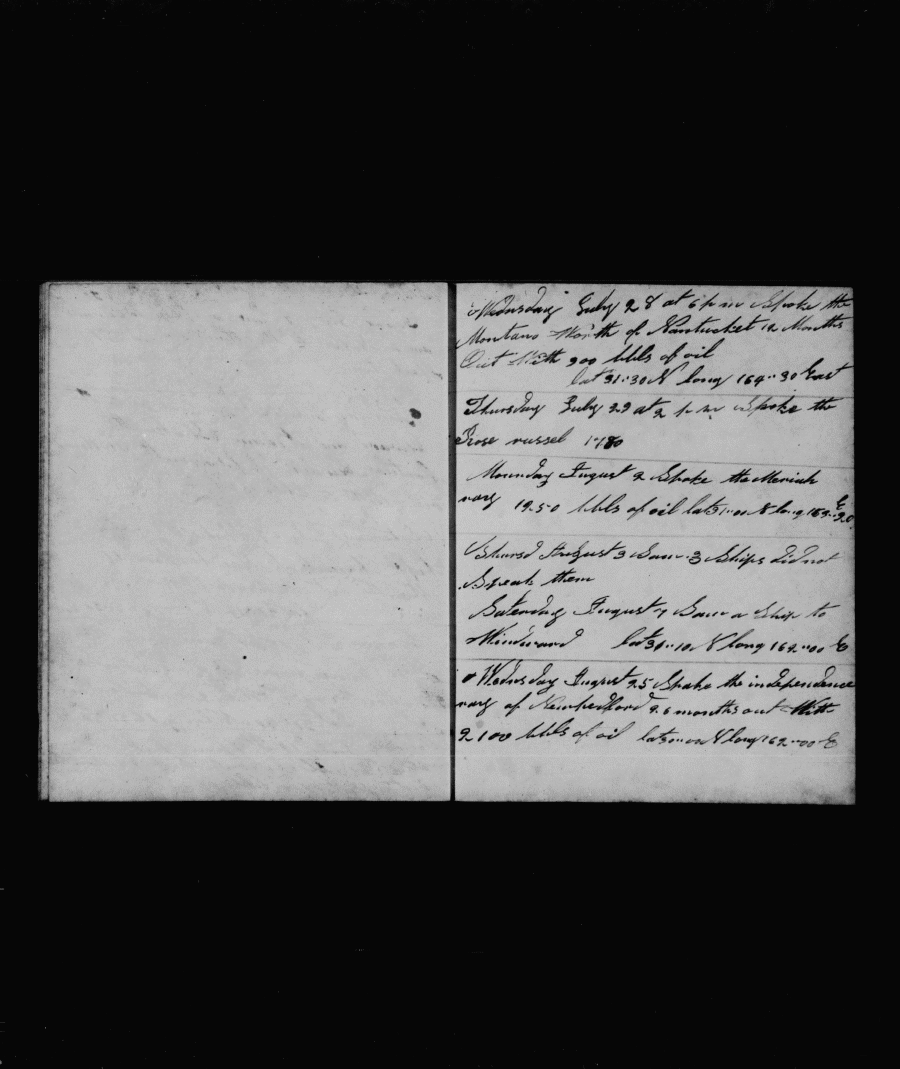 Wednsday July 28 at 6 p m Spoke the
Montano North of Nantucket 12 Months
Out With 900 bbls of oil
lat 31"30 N long 164"30 East
Thursday July 29 at 2 p m Spoke the
Rose russel 1780
Mounday August 2 Spoke the Meriah
rary 1950 bbls of oil lat 31"00 N long 163" E
30
Thursd August 3 Saw 3 Ships did not
Speak them
Saterday August 7 Saw a Ship to
Windward lat 30"10 N long 162"00 E
Wednsday August 25 Spoke the independence
rary of Newbedford 26 months out With
2100 bbls of oil lat N long 162"00 E